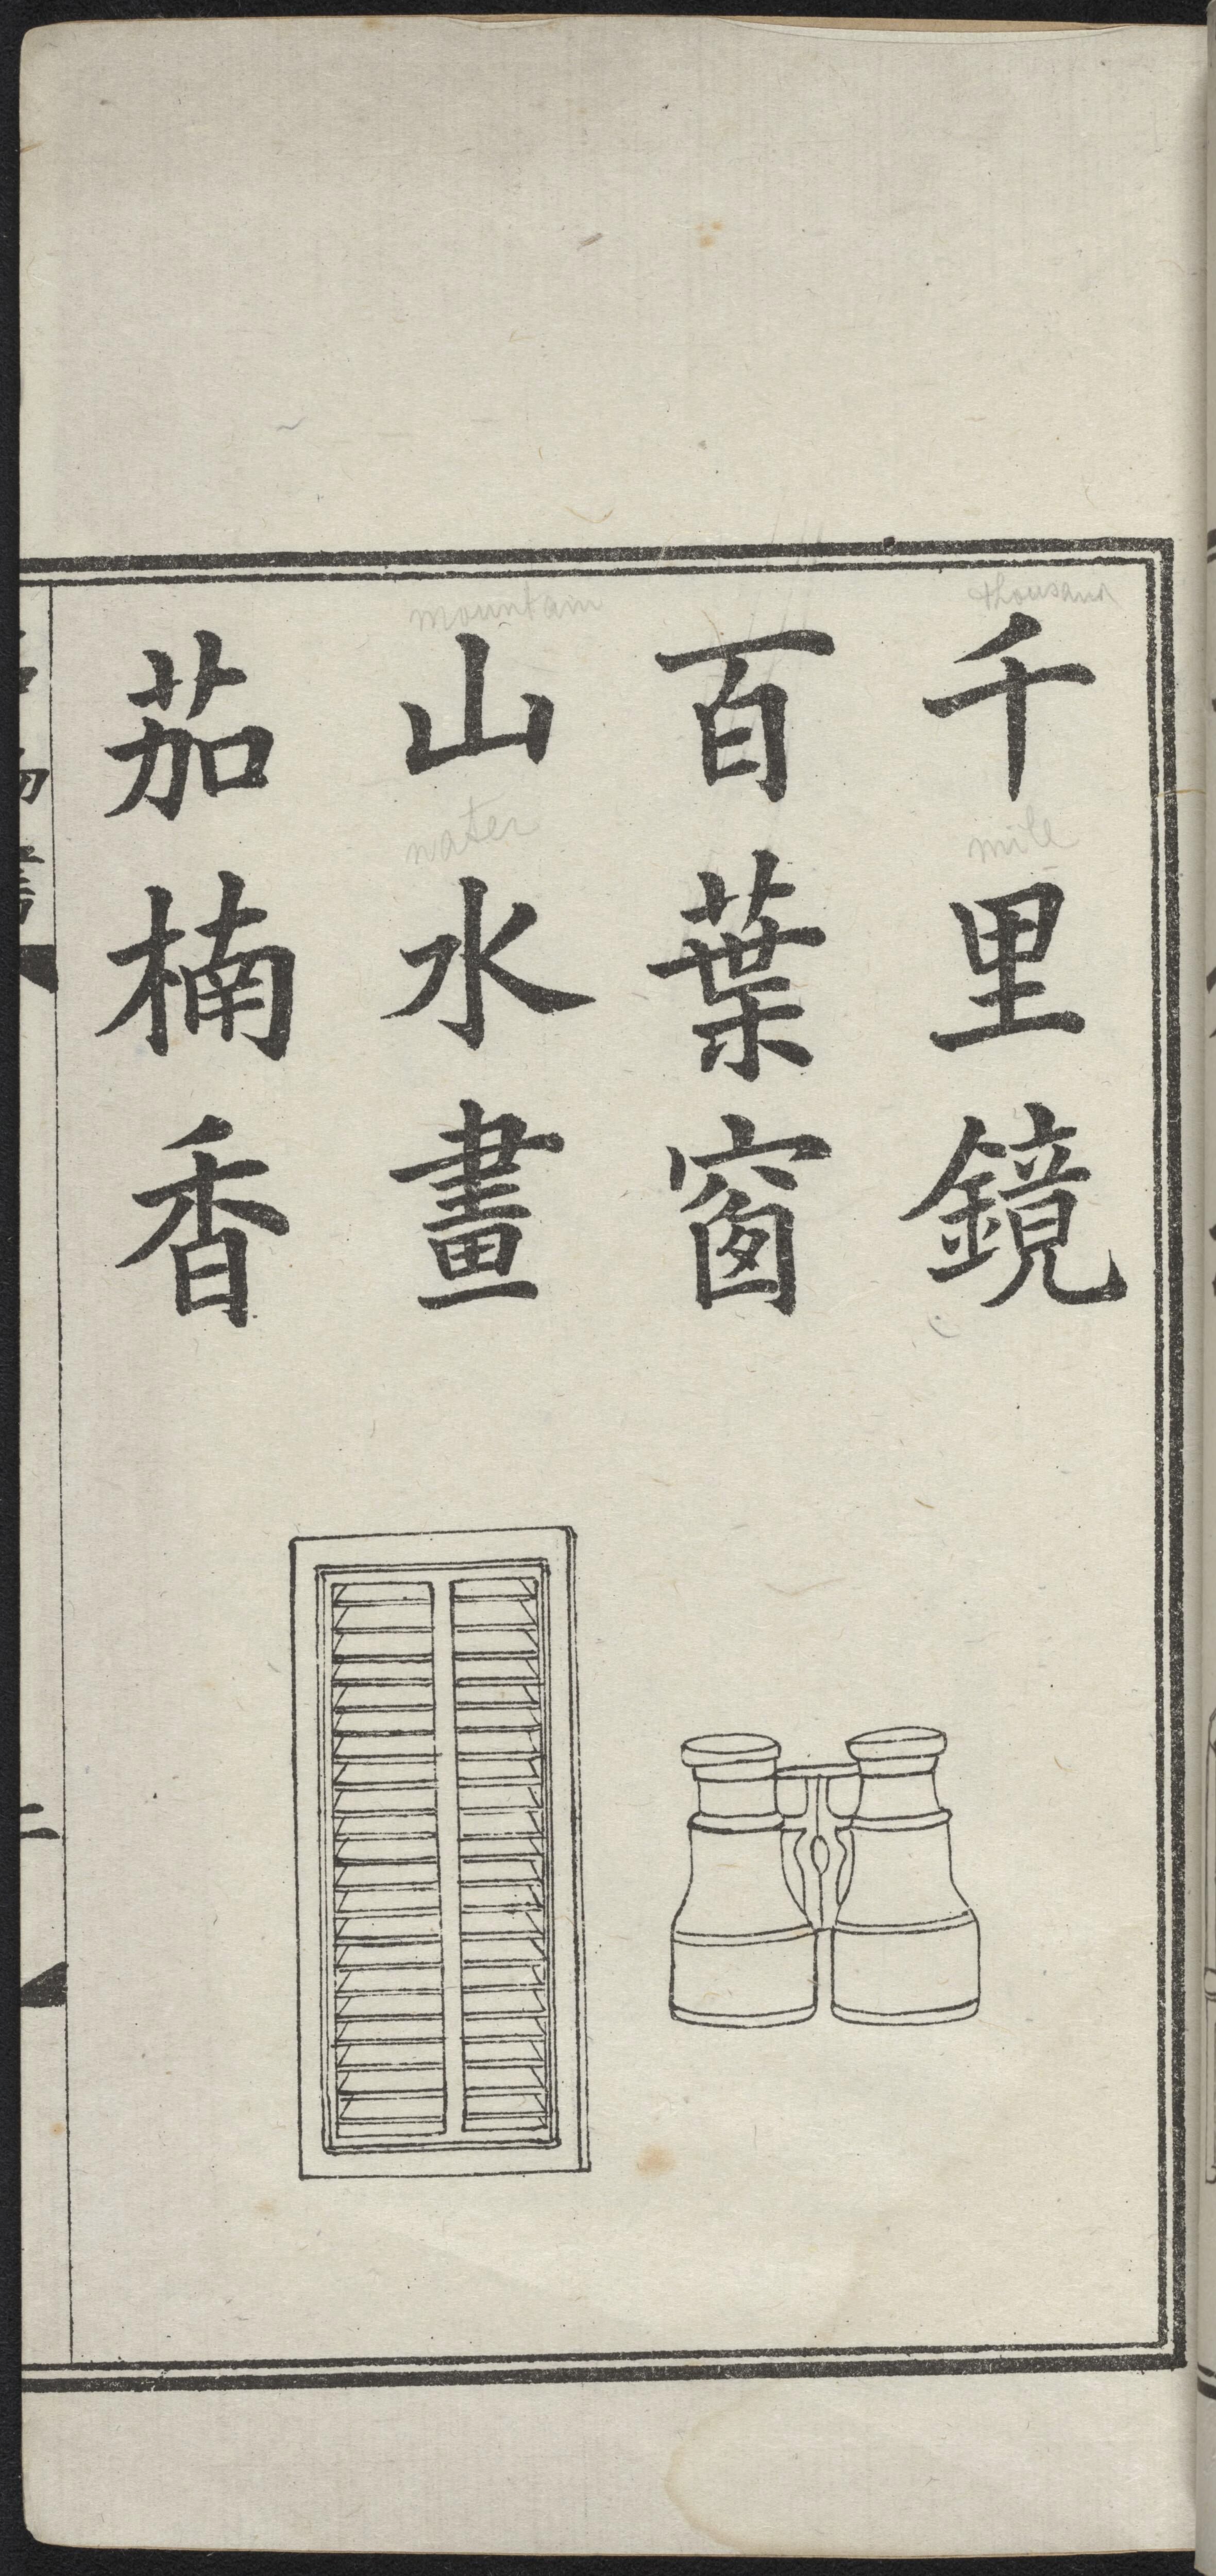 千里鏡
百葉窗
山水畫
茄楠香
thousand
mile
mountain
water
二